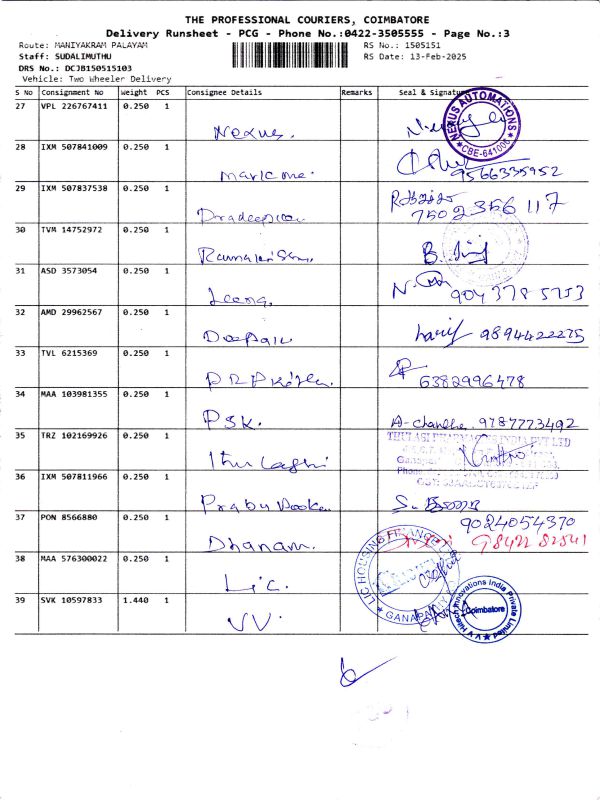 THE PROFESSIONAL COURIERS, COIMBATORE
Delivery Runsheet - PCG - Phone No.:0422-3505555 - Page No.:3
Route: MANIYAKRAM PALAYAM RS No.: 1505151
Staff: SUDALIMUTHU RS Date: 13-Feb-2025
DRS No.: DCJB150515103
Vehicle: Two Wheeler Delivery
S No Consignment No Weight PCS Consignee Details Remarks Seal & Signature
27 VPL 226767411 0.250 1 Nexus.
NEXUS AUTOMATIONS CBE-641006
28 IXM 507841009 0.250 1 9566335952
29 IXM 507837538 0.250 1 7502356117
30 TVM 14752972 0.250 1
31 ASD 3573054 0.250 1 Leena. 9043785753
32 AMD 29962567 0.250 1 9894422275
33 TVL 6215369 0.250 1 6382996478
34 MAA 103981355 0.250 1 PSK. 9787773492
35 TRZ 102169926 0.250 1
36 IXM 507811966 0.250 1 Prabu
37 PON 8566880 0.250 1 Dhanam. 9024054370
98422 82541
38 MAA 576300022 0.250 1 Lic.
LIC HOUSING FINANCE GANAPATHY
39 SVK 10597833 1.440 1 VV.
V V Hitech Innovations India Private Limited Coimbatore